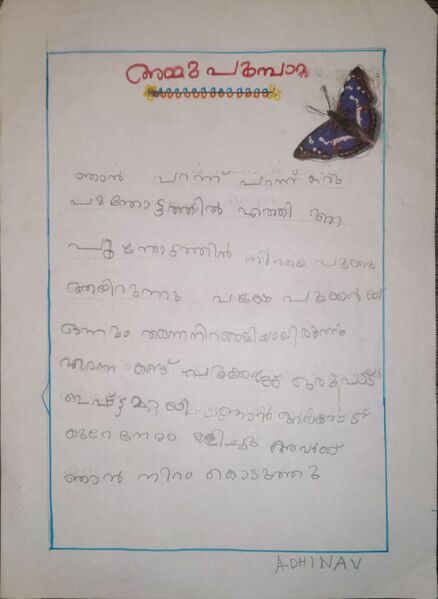 അമ്മു പൂമ്പാറ്റ
ഞാൻ പറന്ന് പറന്ന് ഒരു
പൂന്തോട്ടത്തിൽ എത്തി ആ
പൂന്തോട്ടത്തിൽ നിറയെ പൂക്കൾ
ആയിരുന്നു പക്ഷേ പൂക്കൾക്ക്
ഒന്നും തന്നെ നിറം ഇല്ലായിരുന്നു
എന്നെ കണ്ട് പൂക്കൾക്ക് ഒരുപാട്
ഇഷ്ട്ടമായി ഞാൻ അവരോട്
കുറേ നേരം കളിച്ചു അവർക്ക്
ഞാൻ നിറം കൊടുത്തു
ADHINAV